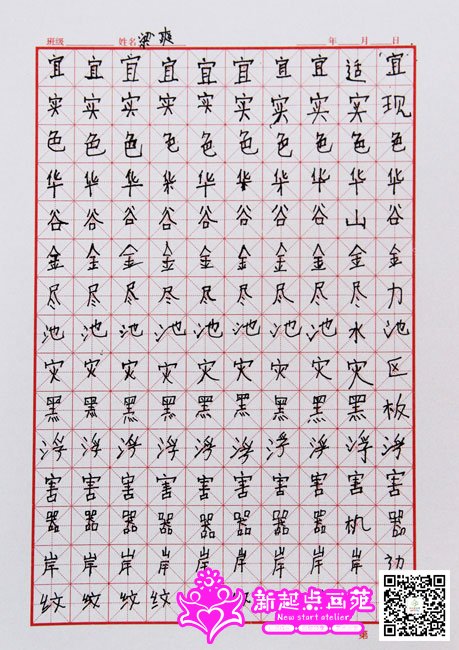 班级 姓名 梁爽 年 月 日
宜 宜 宜 宜 宜 宜 宜 宜 适 宜
实 实 实 实 实 实 实 实 实 现
色 色 色 色 色 色 色 色 色 色
华 华 华 华 华 华 华 华 华 华
谷 谷 谷 谷 谷 谷 谷 谷 山 谷
金 金 金 金 金 金 金 金 金 金
尽 尽 尽 尽 尽 尽 尽 尽 尽 力
池 池 池 池 池 池 池 池 水 池
灾 灾 灾 灾 灾 灾 灾 灾 灾 区
黑 黑 黑 黑 黑 黑 黑 黑 黑 板
浮 浮 浮 浮 浮 浮 浮 浮 浮 浮
害 害 害 害 害 害 害 害 害 害
器 器 器 器 器 器 器 器 机 器
岸 岸 岸 岸 岸 岸 岸 岸 岸
纹 纹 纹 纹
新起点画苑
New start atelier
第